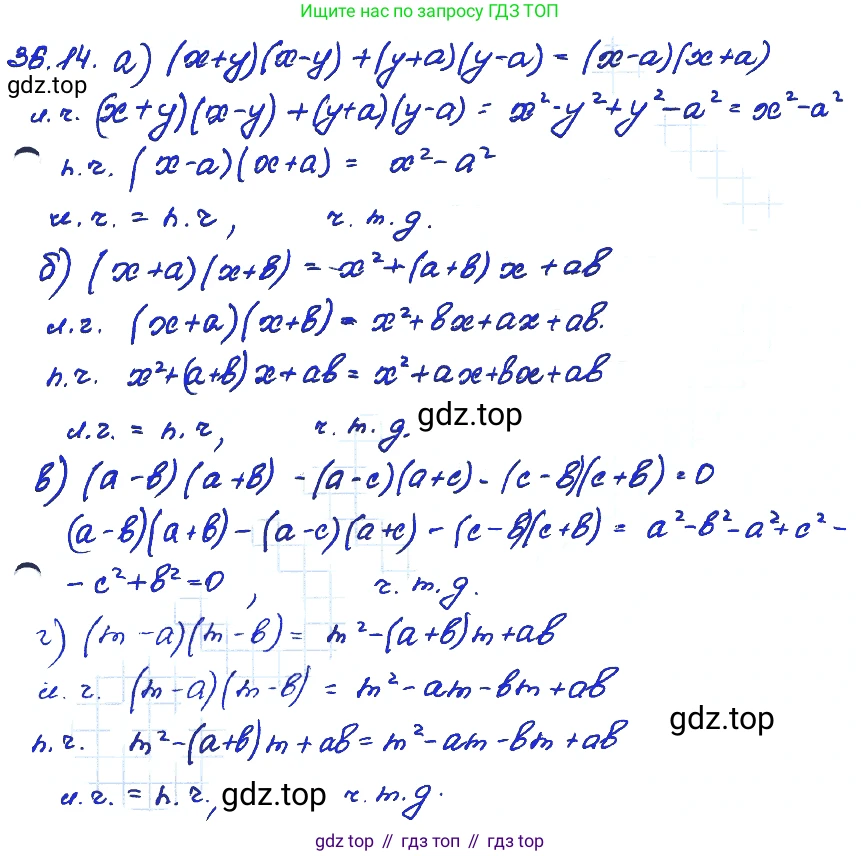 Ищите нас по запросу ГДЗ ТОП
36.14. а) (x+y)(x-y)+(y+a)(y-a)=(x-a)(x+a)
gdz.top
л.ч. (x+y)(x-y)+(y+a)(y-a)= x²-y²+y²-a²=x²-a²
п.ч. (x-a)(x+a)= x²-a²
л.ч. = п.ч, ч.т.д.
б) (x+a)(x+b)=x²+(a+b)x+ab
л.ч. (x+a)(x+b)=x²+bx+ax+ab.
п.ч. x²+(a+b)x+ab=x²+ax+bx+ab
л.ч. = п.ч, ч.т.д. gdz.top
в) (a-b)(a+b)-(a-c)(a+c)-(c-b)(c+b)=0
(a-b)(a+b)-(a-c)(a+c)-(c-b)(c+b)= a²-b²-a²+c²-
-c²+b²=0, ч.т.д.
г) (m-a)(m-b)= m²-(a+b)m+ab
л.ч. (m-a)(m-b)=m²-am-bm+ab
gdz.top
п.ч. m²-(a+b)m+ab=m²-am-bm+ab
л.ч. = п.ч., gdz.top ч.т.д.
gdz top // гдз топ // gdz top